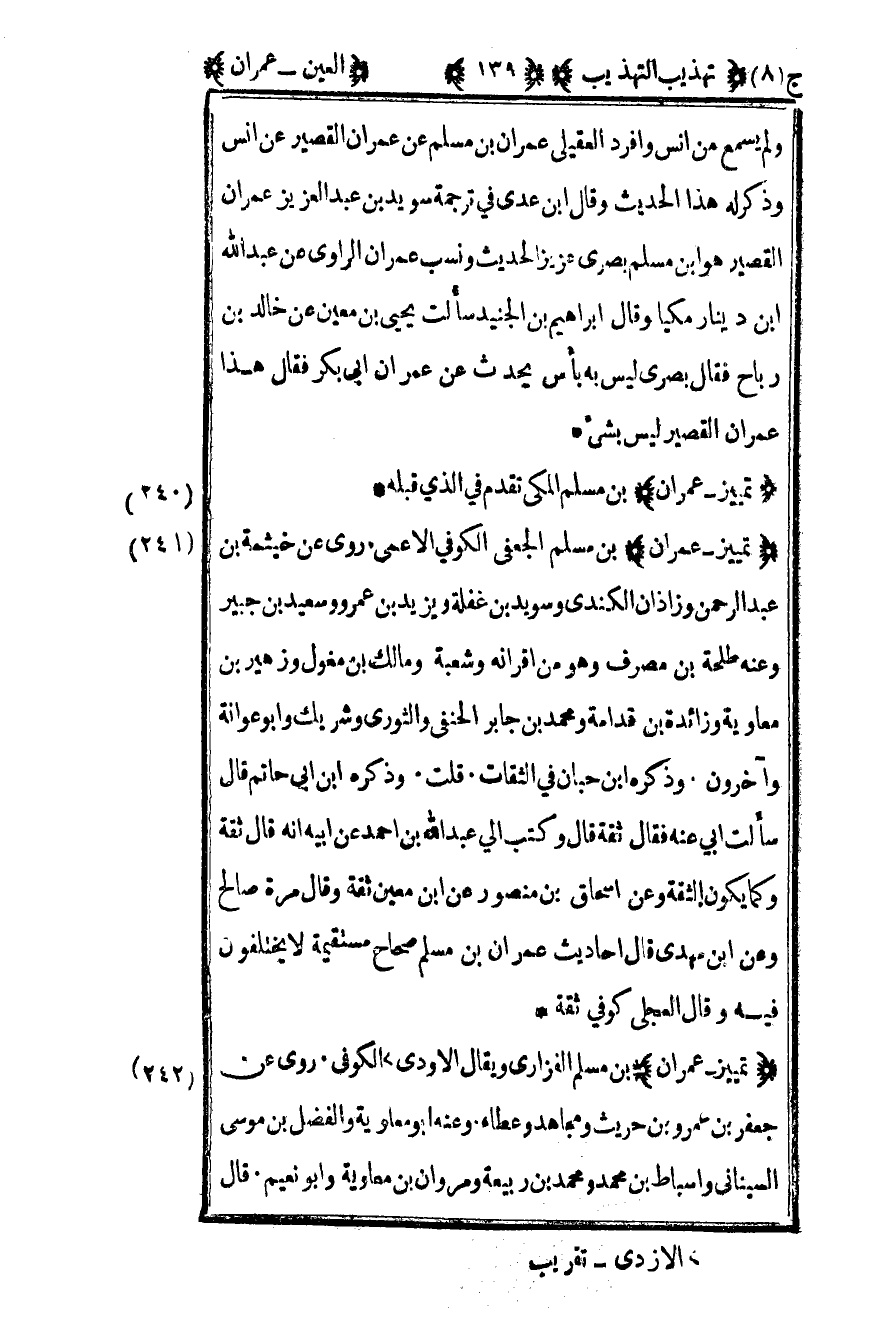 ج (٨) ﴿ تهذيب التهذيب ﴾ ﴿ ١٣٩ ﴾ ﴿ العين ـ عمران ﴾
ولم يسمع من انس وافرد العقيلى عمران بن مسلم عن عمران القصير عن انس
وذكر له هذا الحديث وقال ابن عدى في ترجمة سويد بن عبد العزيز عمران
القصير هو ابن مسلم بصرى عزيز الحديث ونسب عمران الراوى عن عبد الله
ابن دينار مكيا وقال ابراهيم بن الجنيد سألت يحيى بن معين عن خالد بن
رباح فقال بصرى ليس به بأس يحدث عن عمران ابى بكر فقال هـذا
عمران القصير ليس بشئ *
﴿ تمييز ـ عمران ﴾ بن مسلم المكى تقدم في الذي قبله * (٢٤٠)
﴿ تمييز ـ عمران ﴾ بن مسلم الجعفى الكوفي الاعمى · روى عن خيثمة بن (٢٤١)
عبد الرحمن وزاذان الكندى وسويد بن غفلة ويزيد بن عمرو وسعيد بن جبير
وعنه طلحة بن مصرف وهو من اقرانه وشعبة ومالك بن مغول وزهير بن
معاوية وزائدة بن قدامة ومحمد بن جابر الحنفى والثورى وشريك وابو عوانة
وآخرون · وذكره ابن حبان في الثقات · قلت · وذكره ابن ابي حاتم قال
سألت ابي عنه فقال ثقة قال وكتب الي عبد الله بن احمد عن ابيه انه قال ثقة
وكما يكون الثقة وعن اسحاق بن منصور عن ابن معين ثقة وقال مرة صالح
وعن ابن مهدى قال احاديث عمران بن مسلم صحاح مستقيمة لا يختلفون
فيـه و قال العجلى كوفي ثقة *
﴿ تمييز ـ عمران ﴾ بن مسلم الفزارى ويقال الاودى > الكوفى · روى عن (٢٤٢)
جعفر بن عمرو بن حريث ومجاهد وعطاء · وعنه ابو معاوية والفضل بن موسى
السينانى واسباط بن محمد ومحمد بن ربيعة ومروان بن معاوية وابو نعيم · قال
> الازدى ـ تقريب